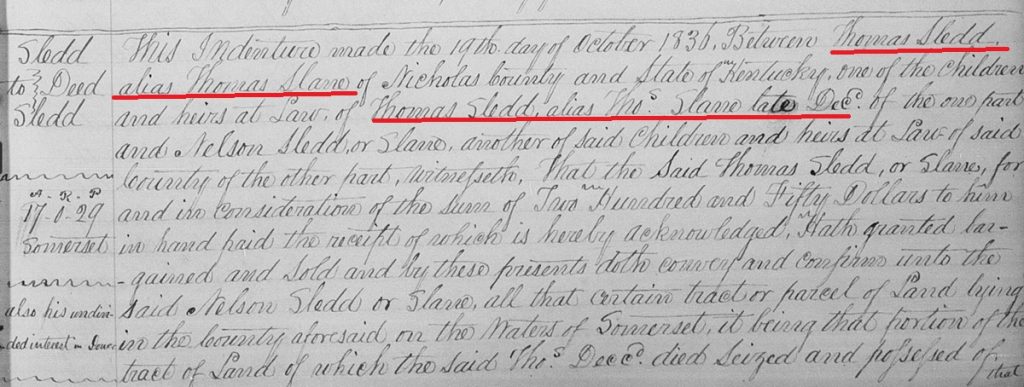 Sledd
to } Deed
Sledd
A. R. P
17-0-29
Somerset
also his undin-
-ded interest in Dower
This Indenture made the 19th day of October 1836, Between Thomas Sledd,
alias Thomas Slane of Nicholas County and State of Kentucky, one of the Children
and heirs at Law, of Thomas Sledd, alias Thos. Slane late Decd. of the one part
and Nelson Sledd, or Slane, another of said Children and heirs at Law of said
County of the other part, Witnesseth, That the Said Thomas Sledd, or Slane, for
and in consideration of the Sum of Two Hundred and Fifty Dollars to him
in hand paid the receipt of which is hereby acknowledged, Hath granted bar-
-gained and Sold and by these presents doth convey and confirm unto the
said Nelson Sledd or Slane, all that certain tract or parcel of Land lying
in the County aforesaid on the Waters of Somerset, it being that portion of the
tract of Land of which the said Thos. Decd. died Seized and possessed of
that